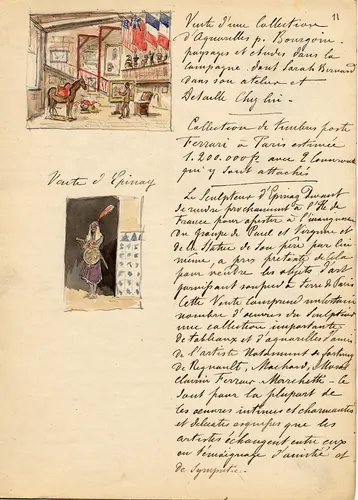 11
Vente d'une Collection
d'Aquarelles p. Bourgoin.
paysages et etudes dans la
campagne. dont Sarah Bernard
dans son atelier et
Detaille chez lui.
Collection de timbres poste
Ferrari à Paris estimée
1.200.000 fr avec 2
qui y sont attachés
Vente d'Epinay
Le Sculpteur d'Epinay Devant
se rendre prochainement à l'Ile de
France pour assister à l'inauguration
du groupe de Paul et Virginie et
de la Statue de son père par lui
même, a pris prétexte de cela
pour vendre les objets d'art
garnissant son
Cette Vente comprend un certain
nombre d'oeuvres du Sculpteur
une collection importante
de tableaux et d'aquarelles d'amis
de l'artiste Notamment de Fortuny
de Regnault, Machard,
clairin Ferrier Marchetti - le
tout pour la plupart de
les oeuvres intimes et charmantes
et delicates esquisses que les
artistes échangent entre eux
en témoignage d'amitié et
de Sympathie.